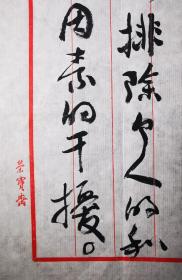 排除个人的私
因素的干扰。
荣宝斋